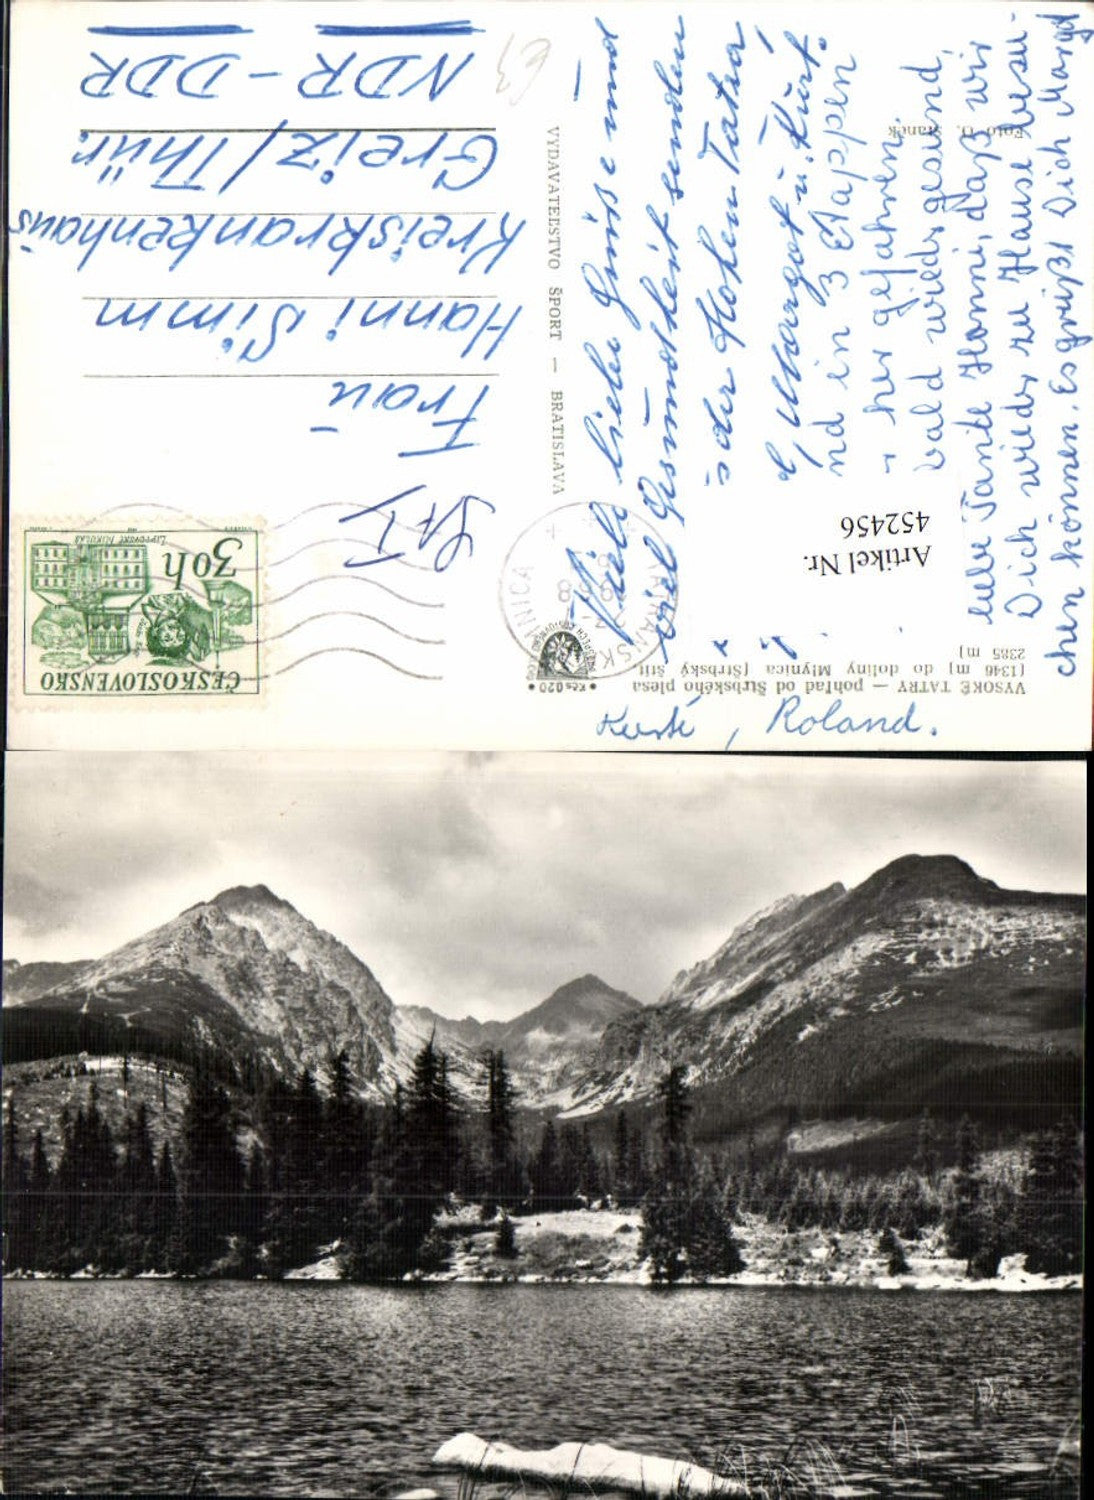 Viele liebe Grüße und
viel Gesundheit senden
der Hohen Tatra
Margot u. Kurt.
in 3 Etappen
her gefahren.
bald wieder gesund,
liebe Tante Hanni, daß wir
Dich wieder zu Hause besu-
chen können. Es grüßt Dich Margot
Roland.
Artikel Nr.
452456
VYSOKÉ TATRY — pohľad od Štrbského plesa
(1346 m) do doliny Mlynica (Štrbský štít
2385 m)
Foto O. Staněk
Kčs 0,20
VYDAVATEĽSTVO ŠPORT — BRATISLAVA
ČESKOSLOVENSKO
30h
LIPTOVSKÝ MIKULÁŠ
Frau
Hanni Simm
Kreiskrankenhaus
Greiz/Thür.
NDR - DDR